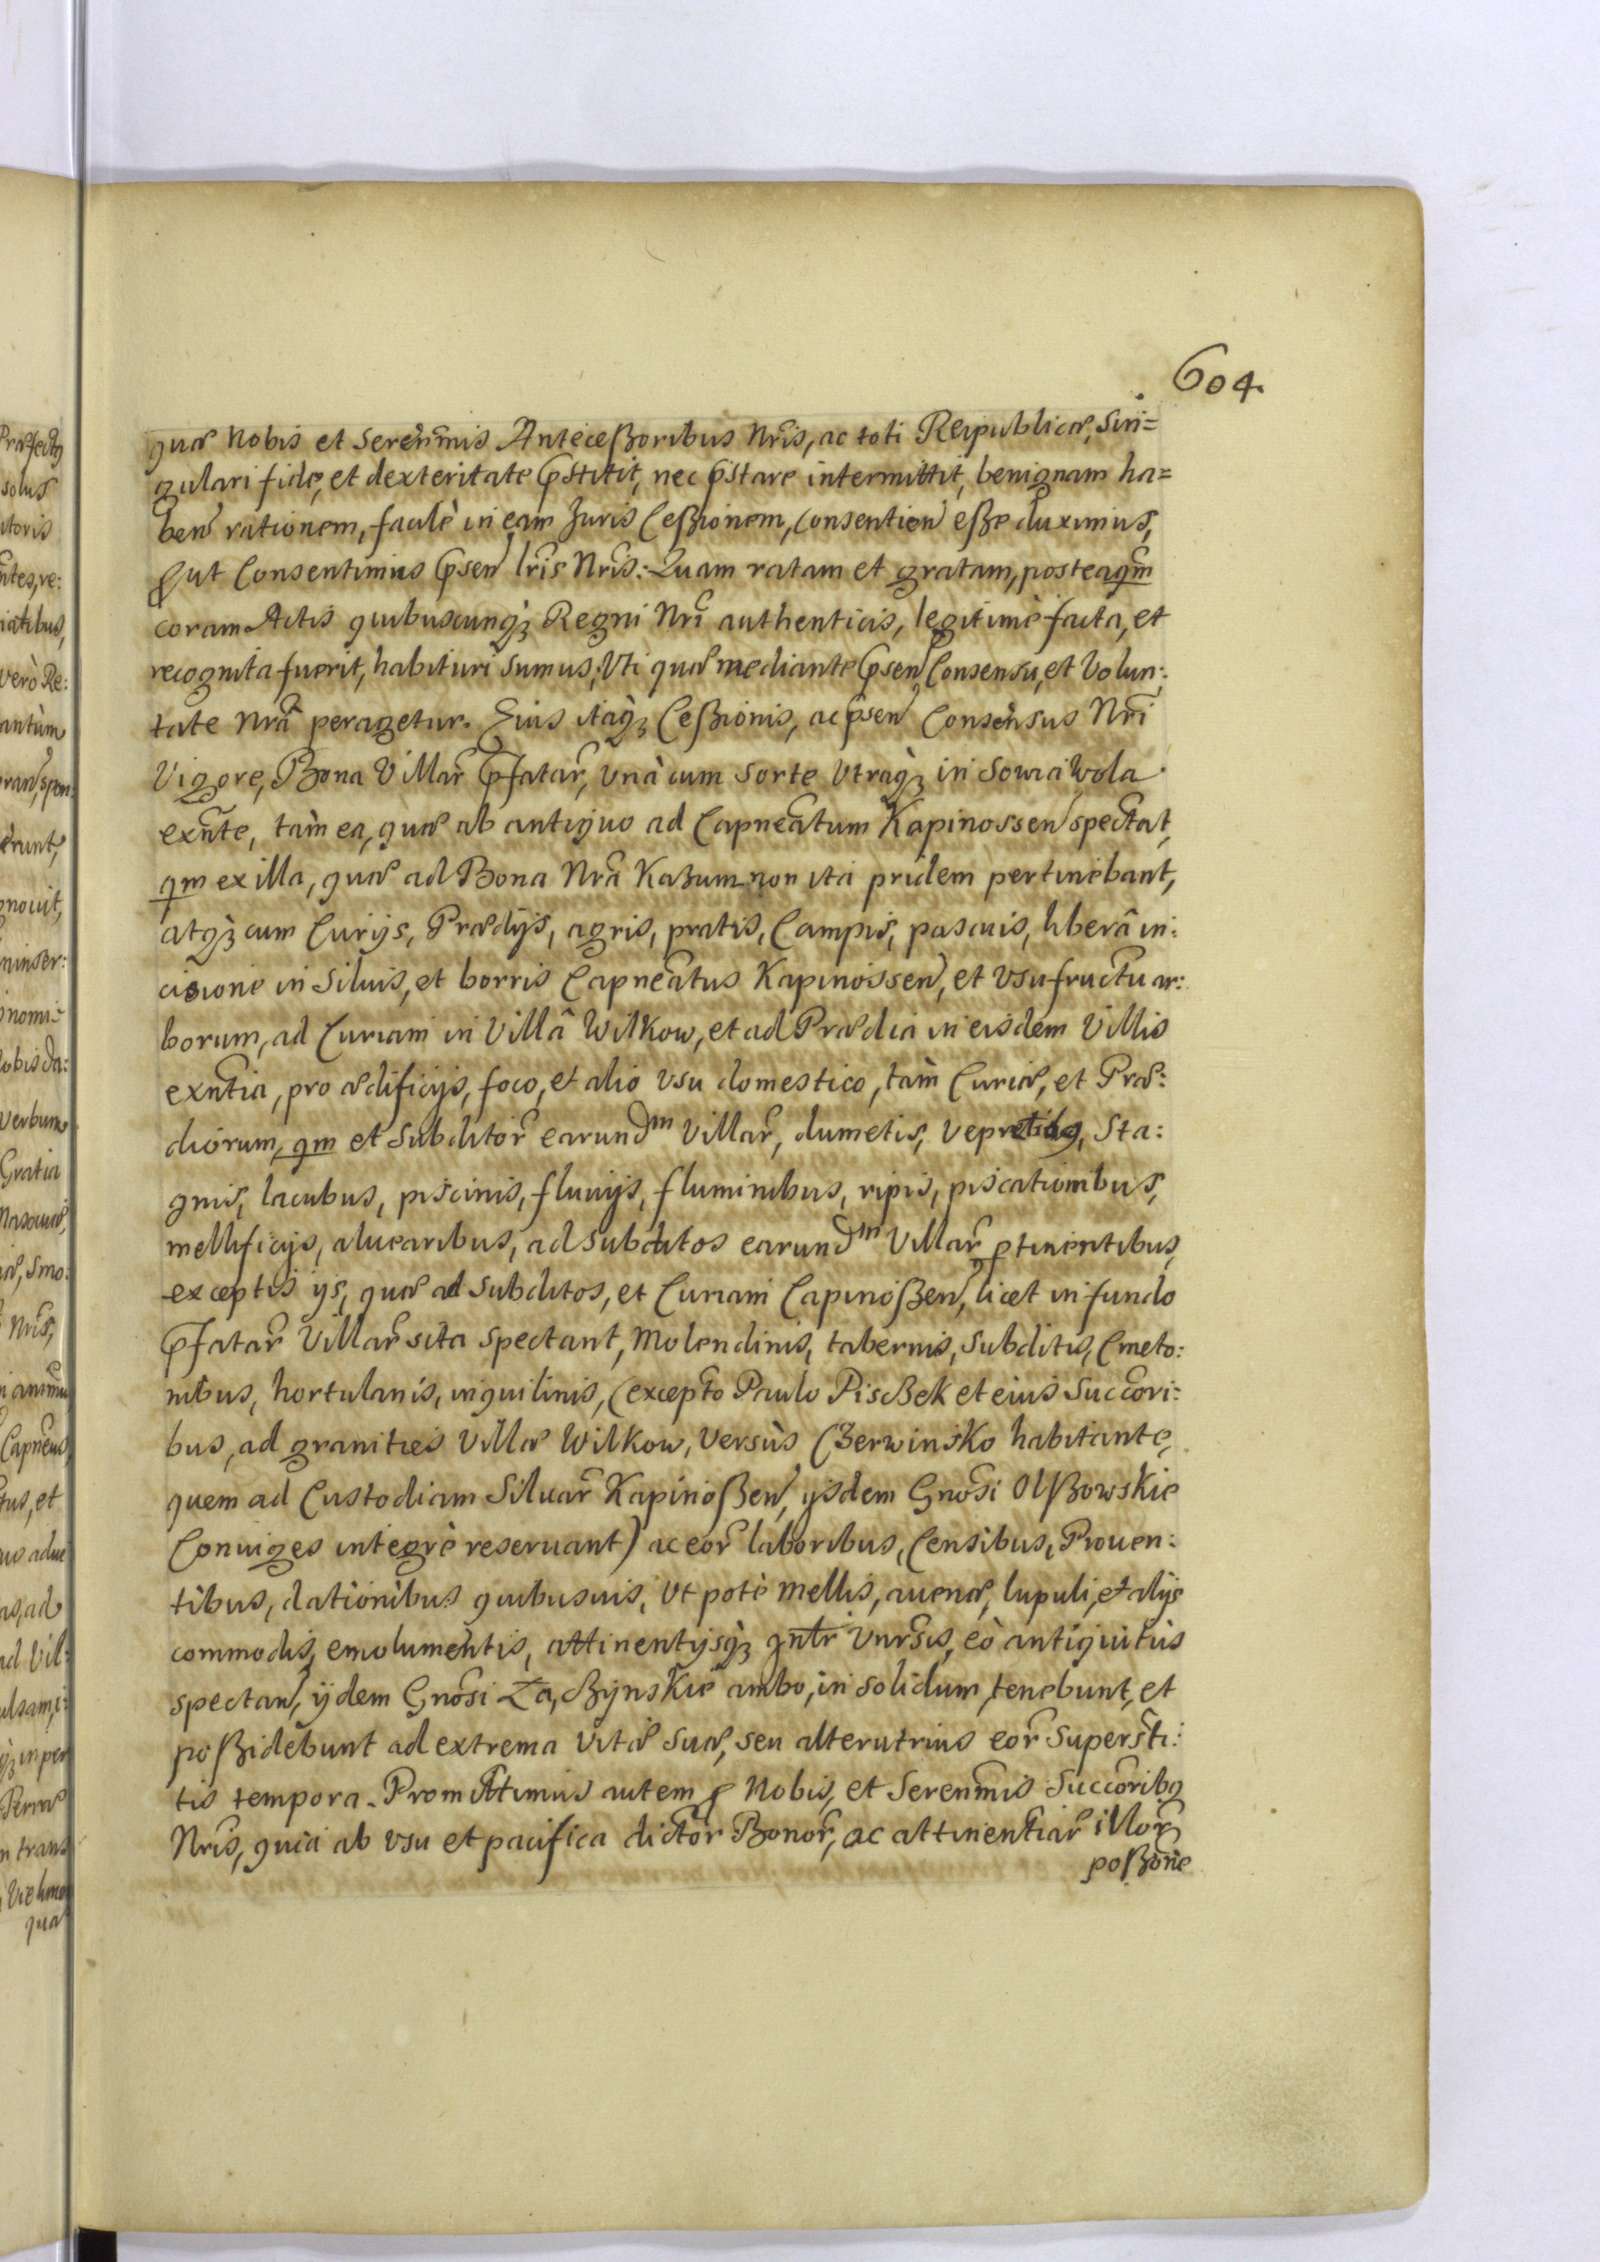 604.
quæ Nobis et Serenm̃is Anteceßoribus Nr̃is, ac toti Reipublicæ, Sin=
gulari fide, et dexteritate p̃stitit, nec p̃stare intermittit, benignam ha=
ben̄ rationem, facilè in eam Juris Ceßionem, Consentien̄ eße duximus,
ꝓut Consentimus p̃sen̄ lr̃is Nr̃is: Quam ratam et gratam, posteaqm̃
coram Actis quibuscunqꝫ Regni Nr̃i authenticis, legitimè facta, et
recognita fuerit, habituri sumus, Uti quæ mediante p̃sen̄ Consensu, et Volun:
tate Nr̃â peragetur. Eius itaqꝫ Ceßionis, ac p̃sen̄ Consensus Nr̃i
Vigore, Bona Villar̃ p̃fatar̃, Unà cum Sorte Utraqꝫ in Sowia Wola
exñte, tàm ea, quæ ab antiquo ad Capnea͠tum Kapinossen̄ spectat,
qm̃ ex illa, quæ ad Bona Nr̃a Kazum non ita pridem pertinebant,
atqꝫ cum Curijs, Prædijs, agris, pratis, Campis, pascuis, liberâ in:
cisione in Siluis, et borris Capnea͠tus Kapinossen̄, et Vsufructu ar:
borum, ad Curiam in Villâ Wilkow, et ad Prædia in eisdem Villis
exñtia, pro ædificijs, foco, et alio Vsu domestico, tàm Curiæ, et Præ:
diorum, qm̃ et Subditor̃ earundm̃ Villar̃, dumetis, Vepretibꝫ, Sta:
gnis, lacubus, piscinis, fluuijs, fluminibus, ripis, piscationibus,
mellificijs, aluearibus, ad Subditos earundm̃ Villar̃ ꝑtinentibus,
exceptis ijs, quæ ad Subditos, et Curiam Capinoßen̄, licet in fundo
p̃fatar̃ Villar̃ sita spectant, Molendinis, tabernis, Subditis, Cmeto:
nibus, hortulanis, inquilinis, (excepto Paulo Piscßek et eius Succor̃i:
bus, ad granities Villæ Wilkow, Versùs Czerwinsko habitante,
quem ad Custodiam Siluar̃ Kapinoßen̄, ijsdem Gnõsi Olßowskie
Coniuges integrè reseruant) ac eor̃ laboribus, Censibus, Prouen:
tibus, dationibus quibusuis, Ut potè Mellis, auenæ, lupuli, et alijs
commodis, emolumentis, attinentijsqꝫ gnlr̃ Vnr̃sis, eò antiquitùs
spectan̄, ijdem Gnõsi Zaßynskie ambo, in Solidum, tenebunt, et
poßidebunt ad extrema Vitæ Suæ, seu alterutrius eor̃ Superstĩ:
tis tempora. Promittimus autem ꝓ Nobis, et Serenm̃is Succor̃ibꝫ
Nr̃is, quia ab vsu et pacifica dictor̃ Bonor̃, ac attinentiar̃ illor̃
poßone